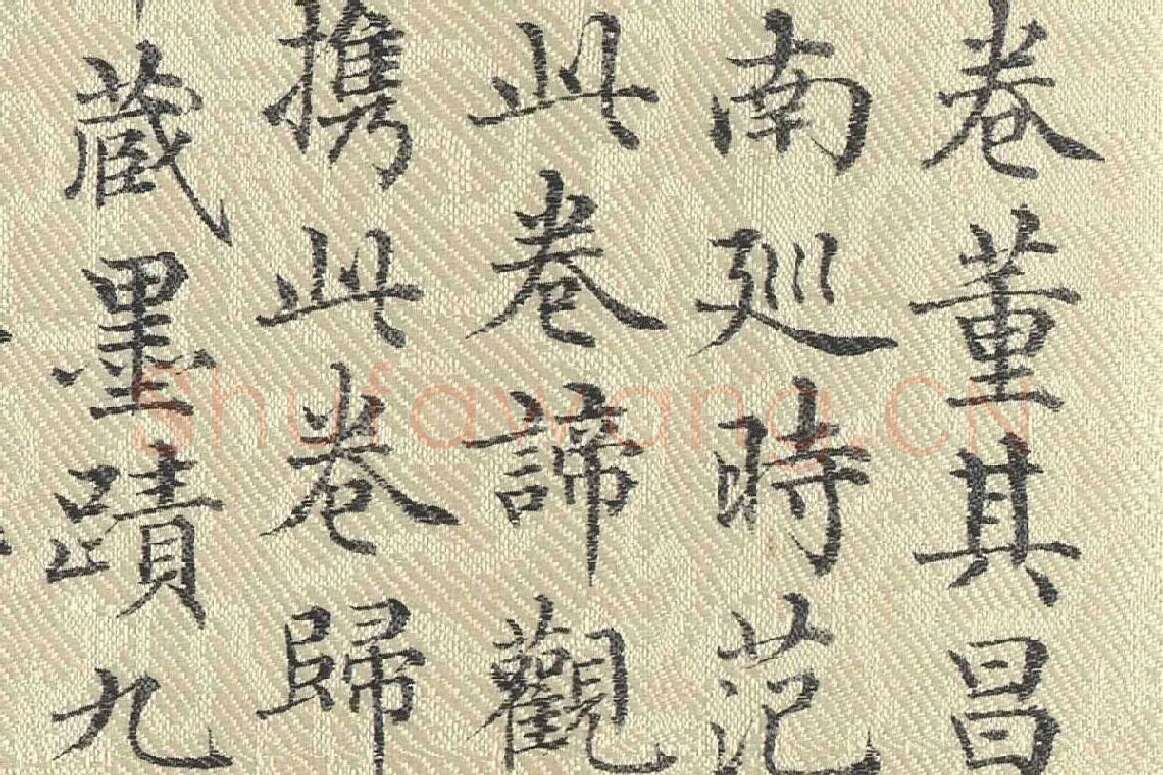 卷董其昌
南巡時范
此卷諦觀
携此卷歸
蔵墨蹟九
Shufawang.CN